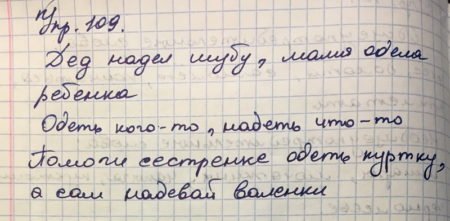 Упр. 109.
Дед надел шубу, мама одела
ребенка
Одеть кого-то, надеть что-то
Помоги сестренке одеть куртку,
а сам надевай валенки